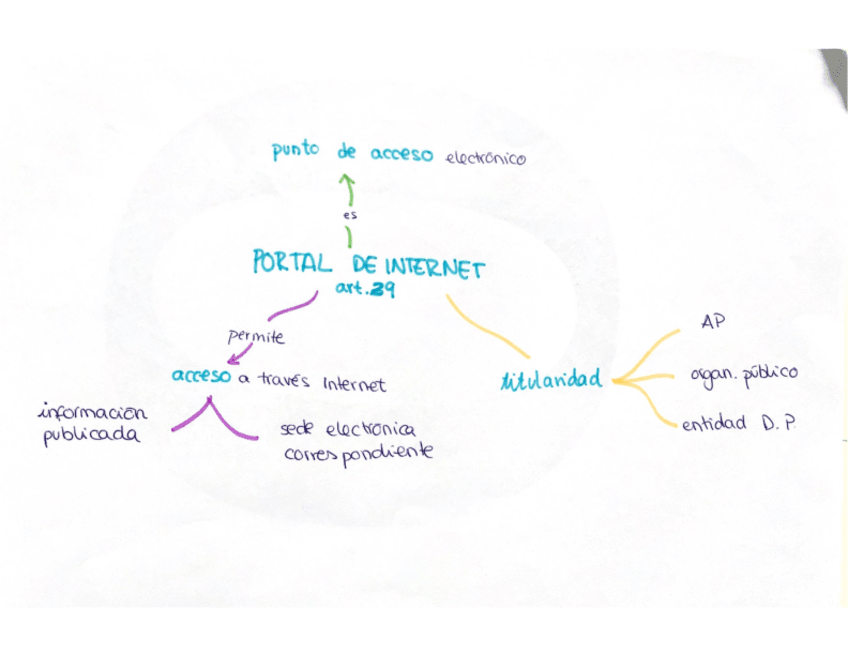 punto de acceso electrónico
es
PORTAL DE INTERNET
art. 39
permite
acceso a través Internet
información
publicada
sede electrónica
correspondiente
titularidad
AP
organ. público
entidad D.P.